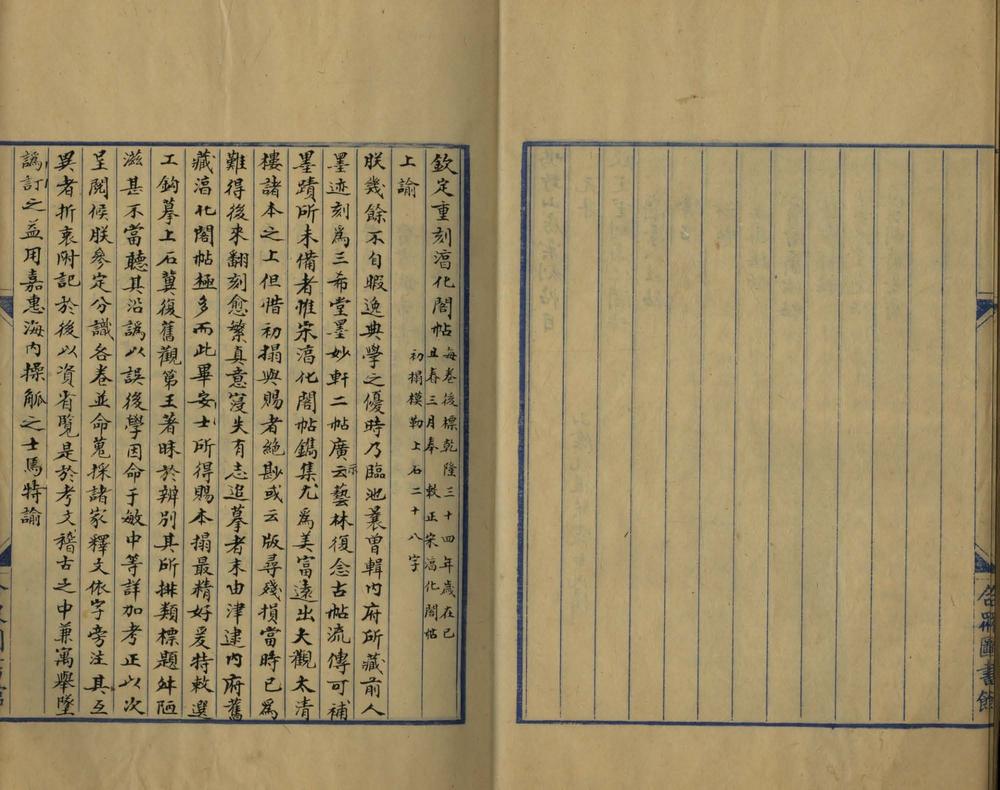 欽定重刻淳化閣帖每卷後標乾隆三十四年歲在己
丑春三月奉敕正宋淳化閣帖
初搨模勒上石二十八字
上諭
朕幾餘不自暇逸典學之優時乃臨池曩曾輯內府所藏前人
墨迹刻爲三希堂墨妙軒二帖廣示藝林復念古帖流傳可補
墨蹟所未備者惟宋淳化閣帖鐫集尤爲美富遠出大觀太清
樓諸本之上但惜初搨與賜者絕尠或云版尋殘損當時已爲
難得後來翻刻愈繁真意寖失有志追摹者末由津逮內府舊
藏淳化閣帖極多而此畢安士所得賜本搨最精好爰特敕選
工鈎摹上石冀復舊觀第王著昧於辨別其所排類標題舛陋
滋甚不當聽其沿譌以誤後學因命于敏中等詳加考正以次
呈閱候朕參定分識各卷並命蒐採諸家釋文依字旁注其互
異者折衷附記於後以資省覽是於考文稽古之中兼寓舉墜
譌訂之益用嘉惠海內操觚之士焉特諭
圖書館